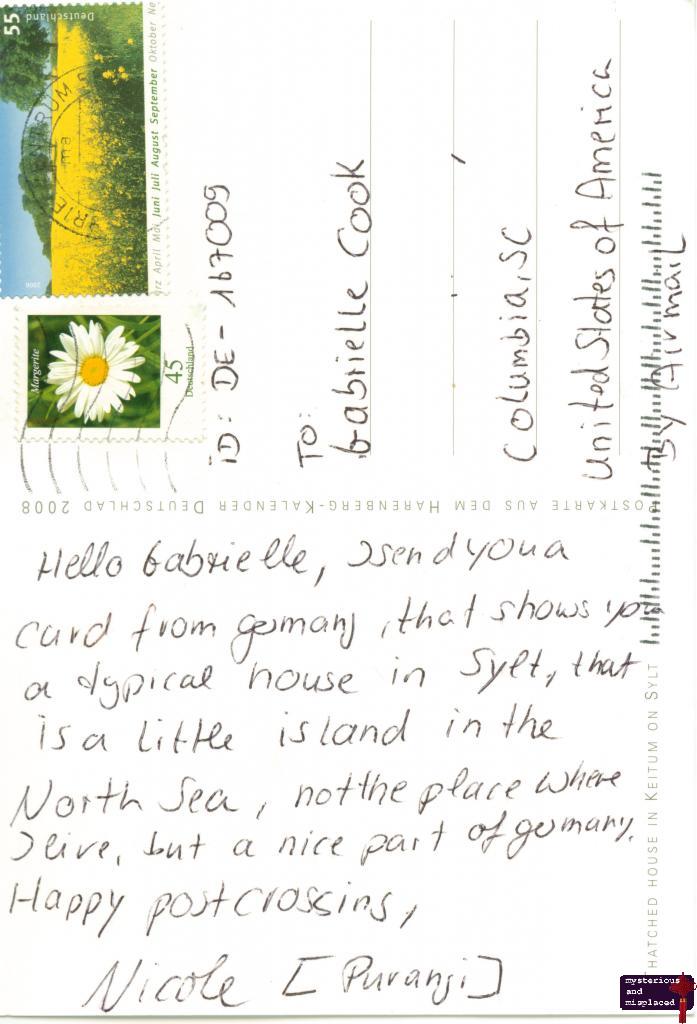 55
Deutschland
März April Mai Juni Juli August September Oktober
2006
BRIEFZENTRUM
Margerite
45
Deutschland
ID: DE-167009
TO:
Gabrielle Cook
Columbia, SC
United States of America
By Airmail
POSTKARTE AUS DEM HARENBERG-KALENDER DEUTSCHLAD 2008
Hello Gabrielle, I send you a
card from germany, that shows you
a typical house in Sylt, that
is a little island in the
North Sea, not the place where
I live, but a nice part of germany.
Happy postcrossing,
Nicole [Puranji]
THATCHED HOUSE IN KEITUM ON SYLT
mysterious
and
misplaced